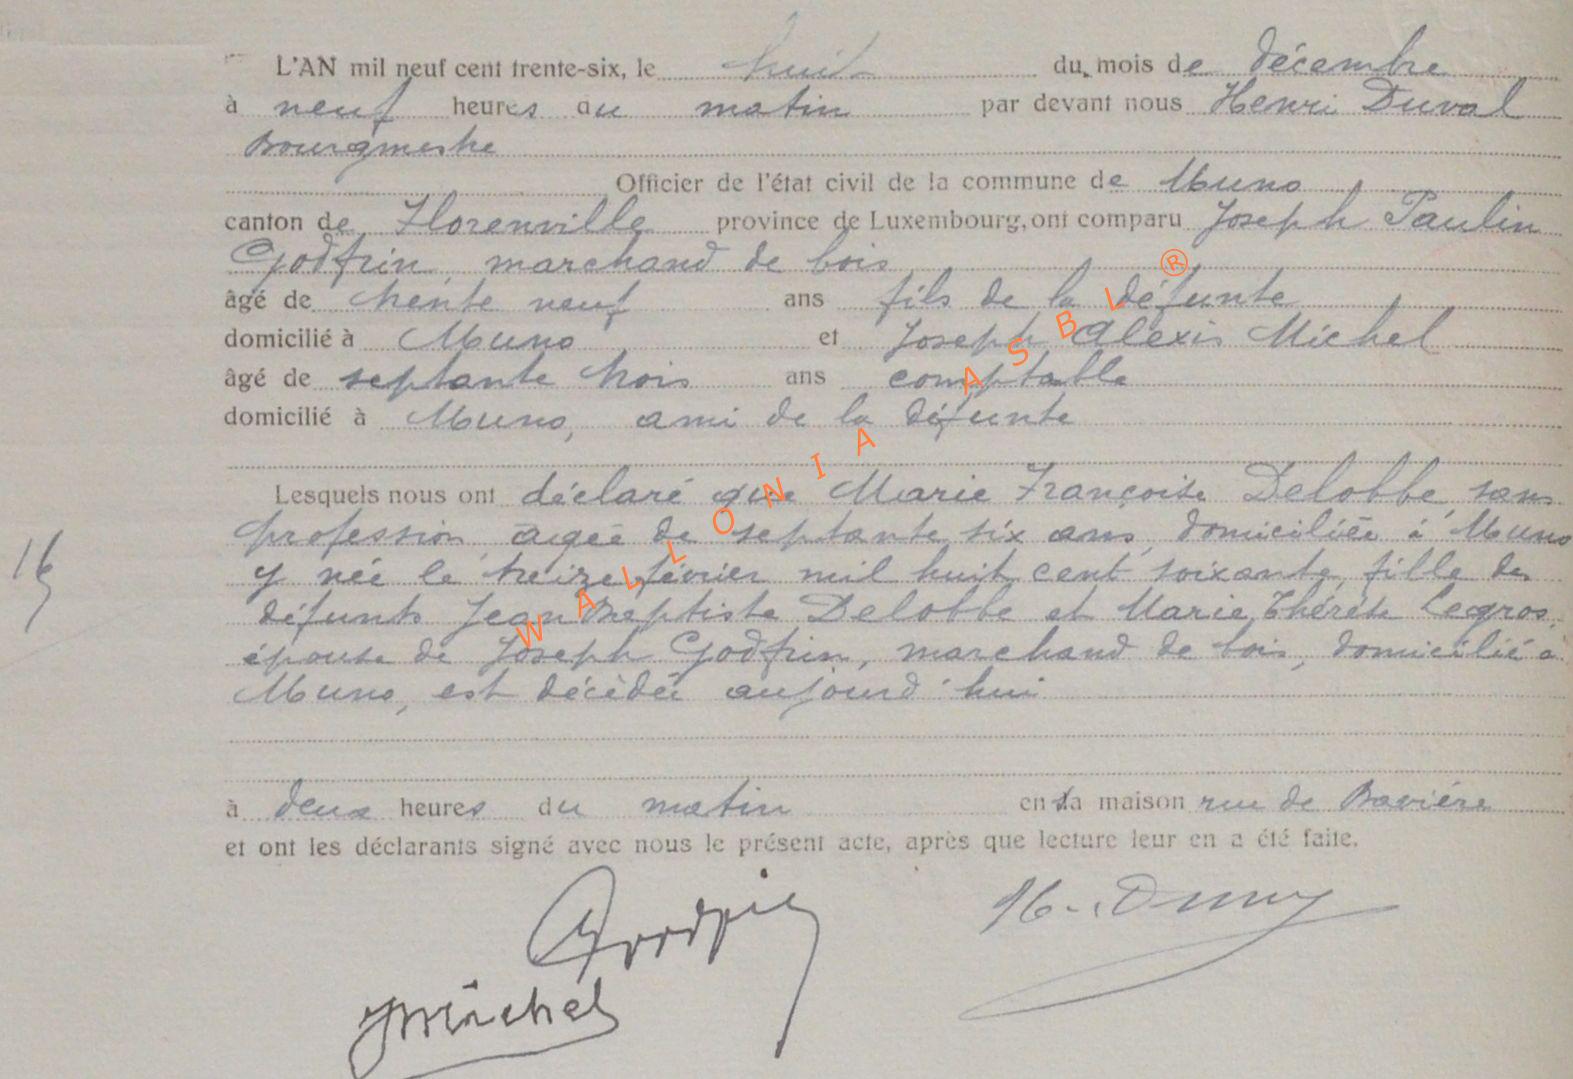 L'AN mil neuf cent trente-six, le huit du mois de décembre
à neuf heures au matin par devant nous Henri Duval
Bourgmestre
Officier de l'état civil de la commune de Muno
canton de Florenville province de Luxembourg, ont comparu Joseph Paulin
Godfrin, marchand de bois
âgé de trente neuf ans fils de la défunte
domicilié à Muno et Joseph Alexis Michel
âgé de septante trois ans comptable
domicilié à Muno, ami de la défunte
Lesquels nous ont déclaré que Marie Françoise Delobbe, sans
profession, agée de septante six ans, domiciliée à Muno
16 y née le treize février mil huit cent soixante, fille des
défunts Jean Baptiste Delobbe et Marie Thérèse Legros,
épouse de Joseph Godfrin, marchand de bois, domicilié à
Muno, est décédée aujourd'hui
à deux heures du matin en sa maison rue de Bavière
et ont les déclarants signé avec nous le présent acte, après que lecture leur en a été faite.
Godfrin H. Duval
J Michel
WALLONIA ASBL ®